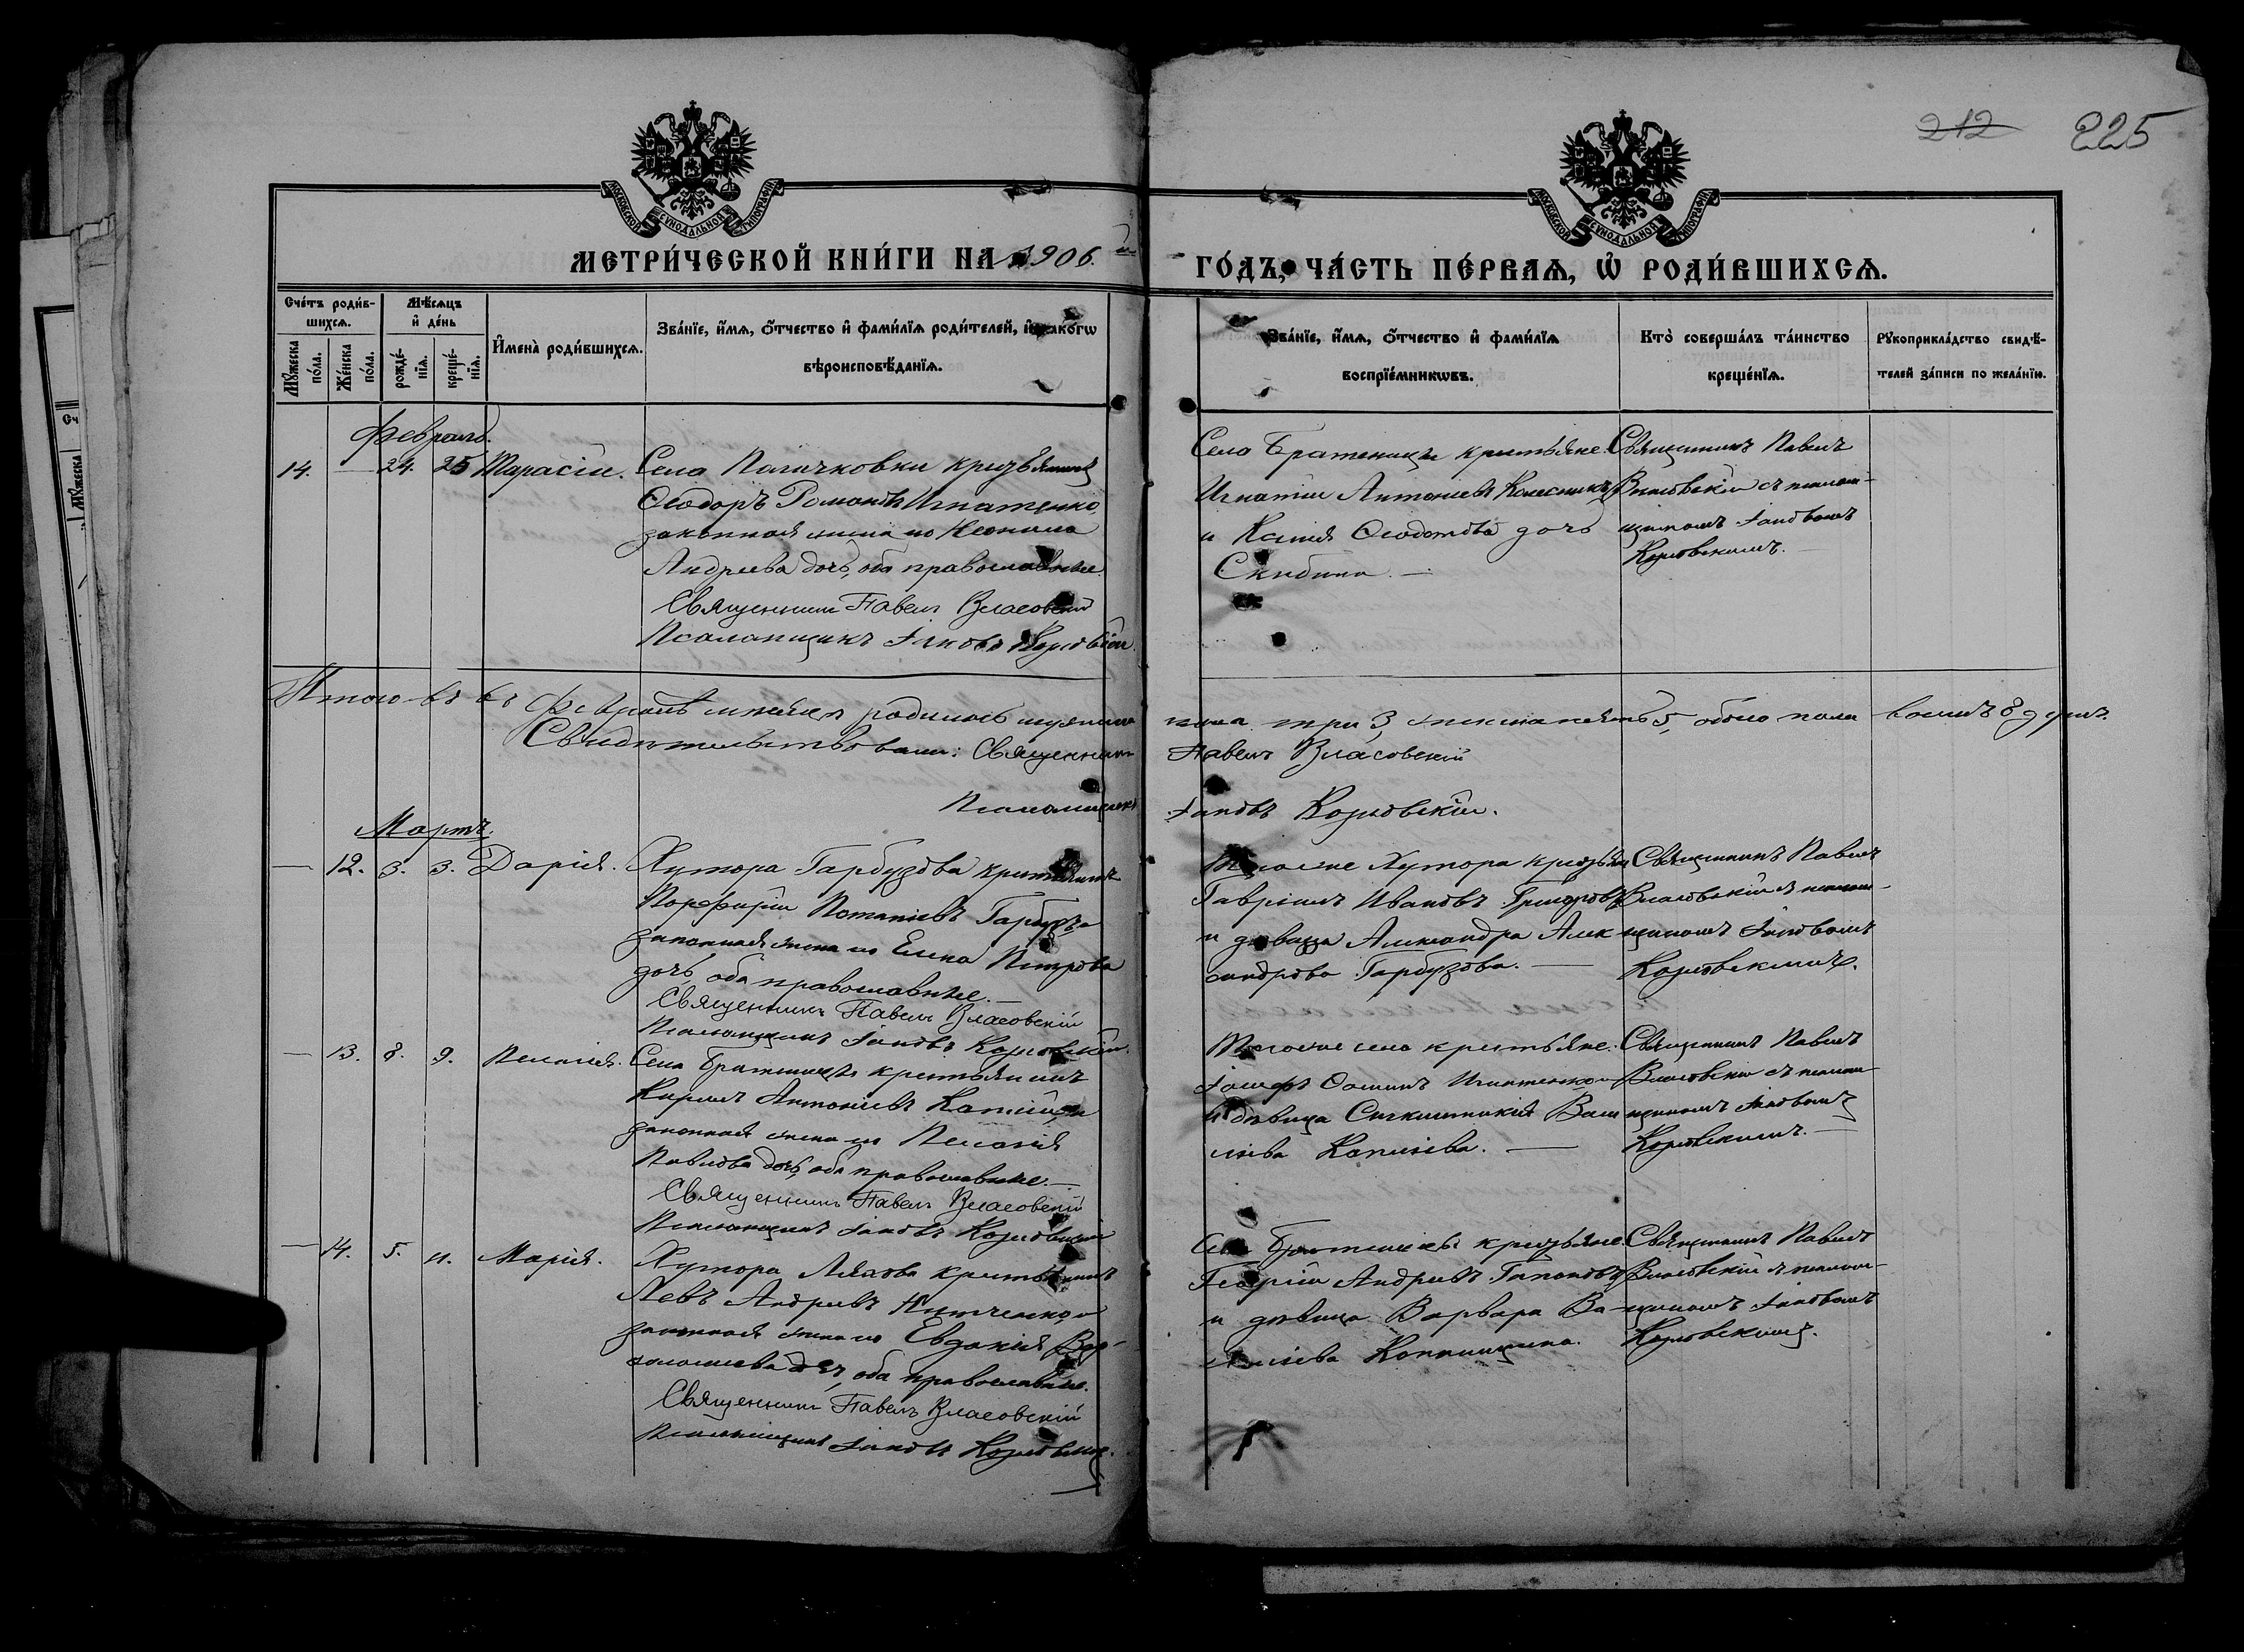 212 225
МОСКОВСКОЙ СѴНОДАЛЬНОЙ ТИПОГРАФІИ
МОСКОВСКОЙ СѴНОДАЛЬНОЙ ТИПОГРАФІИ
МЕТРИ́ЧЕСКОЙ КНИ́ГИ НА 1906.
ГО́ДЪ, ЧА́СТЬ ПЕ́РВАѦ, Ѡ҆ РОДИ́ВШИХСѦ.
Сче́тъ роди́в-
шихсѧ.
Мꙋ́жеска по́ла.
Же́нска по́ла.
Мѣ́сѧцъ
и҆ де́нь
рожде́-
нїѧ.
креще́-
нїѧ.
И҆мена̀ роди́вшихсѧ.
Зва́нїе, и҆́мѧ, ѻ҆́тчество и҆ фами́лїѧ роди́телей, и҆ како́гѡ
вѣроисповѣ́данїѧ.
Зва́нїе, и҆́мѧ, ѻ҆́тчество и҆ фами́лїѧ
воспрїе́мникѡвъ.
Кто̀ соверша́лъ та́инство
креще́нїѧ.
Рꙋкоприкла́дство свидѣ́-
телей за́писи по жела́нїю.
Февраль.
14. — 24. 25 Тарасій.
Села крестьянинъ
Ѳеодоръ Романовъ Игнатенко,
законная жена его Неонила
Андреева дочь, оба православные.
Священникъ Павелъ Власовскій
Псаломщикъ Іаковъ
Села Братеницы крестьяне:
Игнатій Антоніевъ Колесникъ
и Ксенія Ѳеодотова дочь
Скибина. —
Священникъ Павелъ
Власовскій съ псалом-
щикомъ Іаковомъ
Итого въ Февралѣ мѣсяцѣ родилось мужеска
пола три 3, женска пять 5, обоего пола восемь 8 душъ.
Свидѣтельствовали: Священникъ Павелъ Власовскій
Псаломщикъ Іаковъ
Мартъ.
— 12. 3. 3. Дарія.
Хутора Гарбузова крестьянинъ
Порфирій Гарбузъ
законная жена его Елена Петрова
дочь, оба православные. —
Священникъ Павелъ Власовскій
Псаломщикъ Іаковъ
Того же Хутора крестьяне
Гавріилъ Ивановъ
и дѣвица Александра Алек-
сандрова Гарбузова. —
Священникъ Павелъ
Власовскій съ псалом-
щикомъ Іаковомъ
— 13. 8. 9. Пелагія.
Села Братеницы крестьянинъ
Кирилъ Антоніевъ
законная жена его Пелагія
Павлова дочь, оба православные. —
Священникъ Павелъ Власовскій
Псаломщикъ Іаковъ
Того же села крестьяне:
Іосифъ Игнатенко
и дѣвица Васи-
ліева —
Священникъ Павелъ
Власовскій съ псалом-
щикомъ Іаковомъ
— 14. 5. 11. Марія.
Хутора крестьянинъ
Левъ Андреевъ
законная жена его Евдокія Вар-
оломеева дочь, оба православные.
Священникъ Павелъ Власовскій
Псаломщикъ Іаковъ
Села Братеницы крестьяне:
Георгій Андреевъ Гапоновъ
и дѣвица Варвара Ва-
силіева
Священникъ Павелъ
Власовскій съ псалом-
щикомъ Іаковомъ